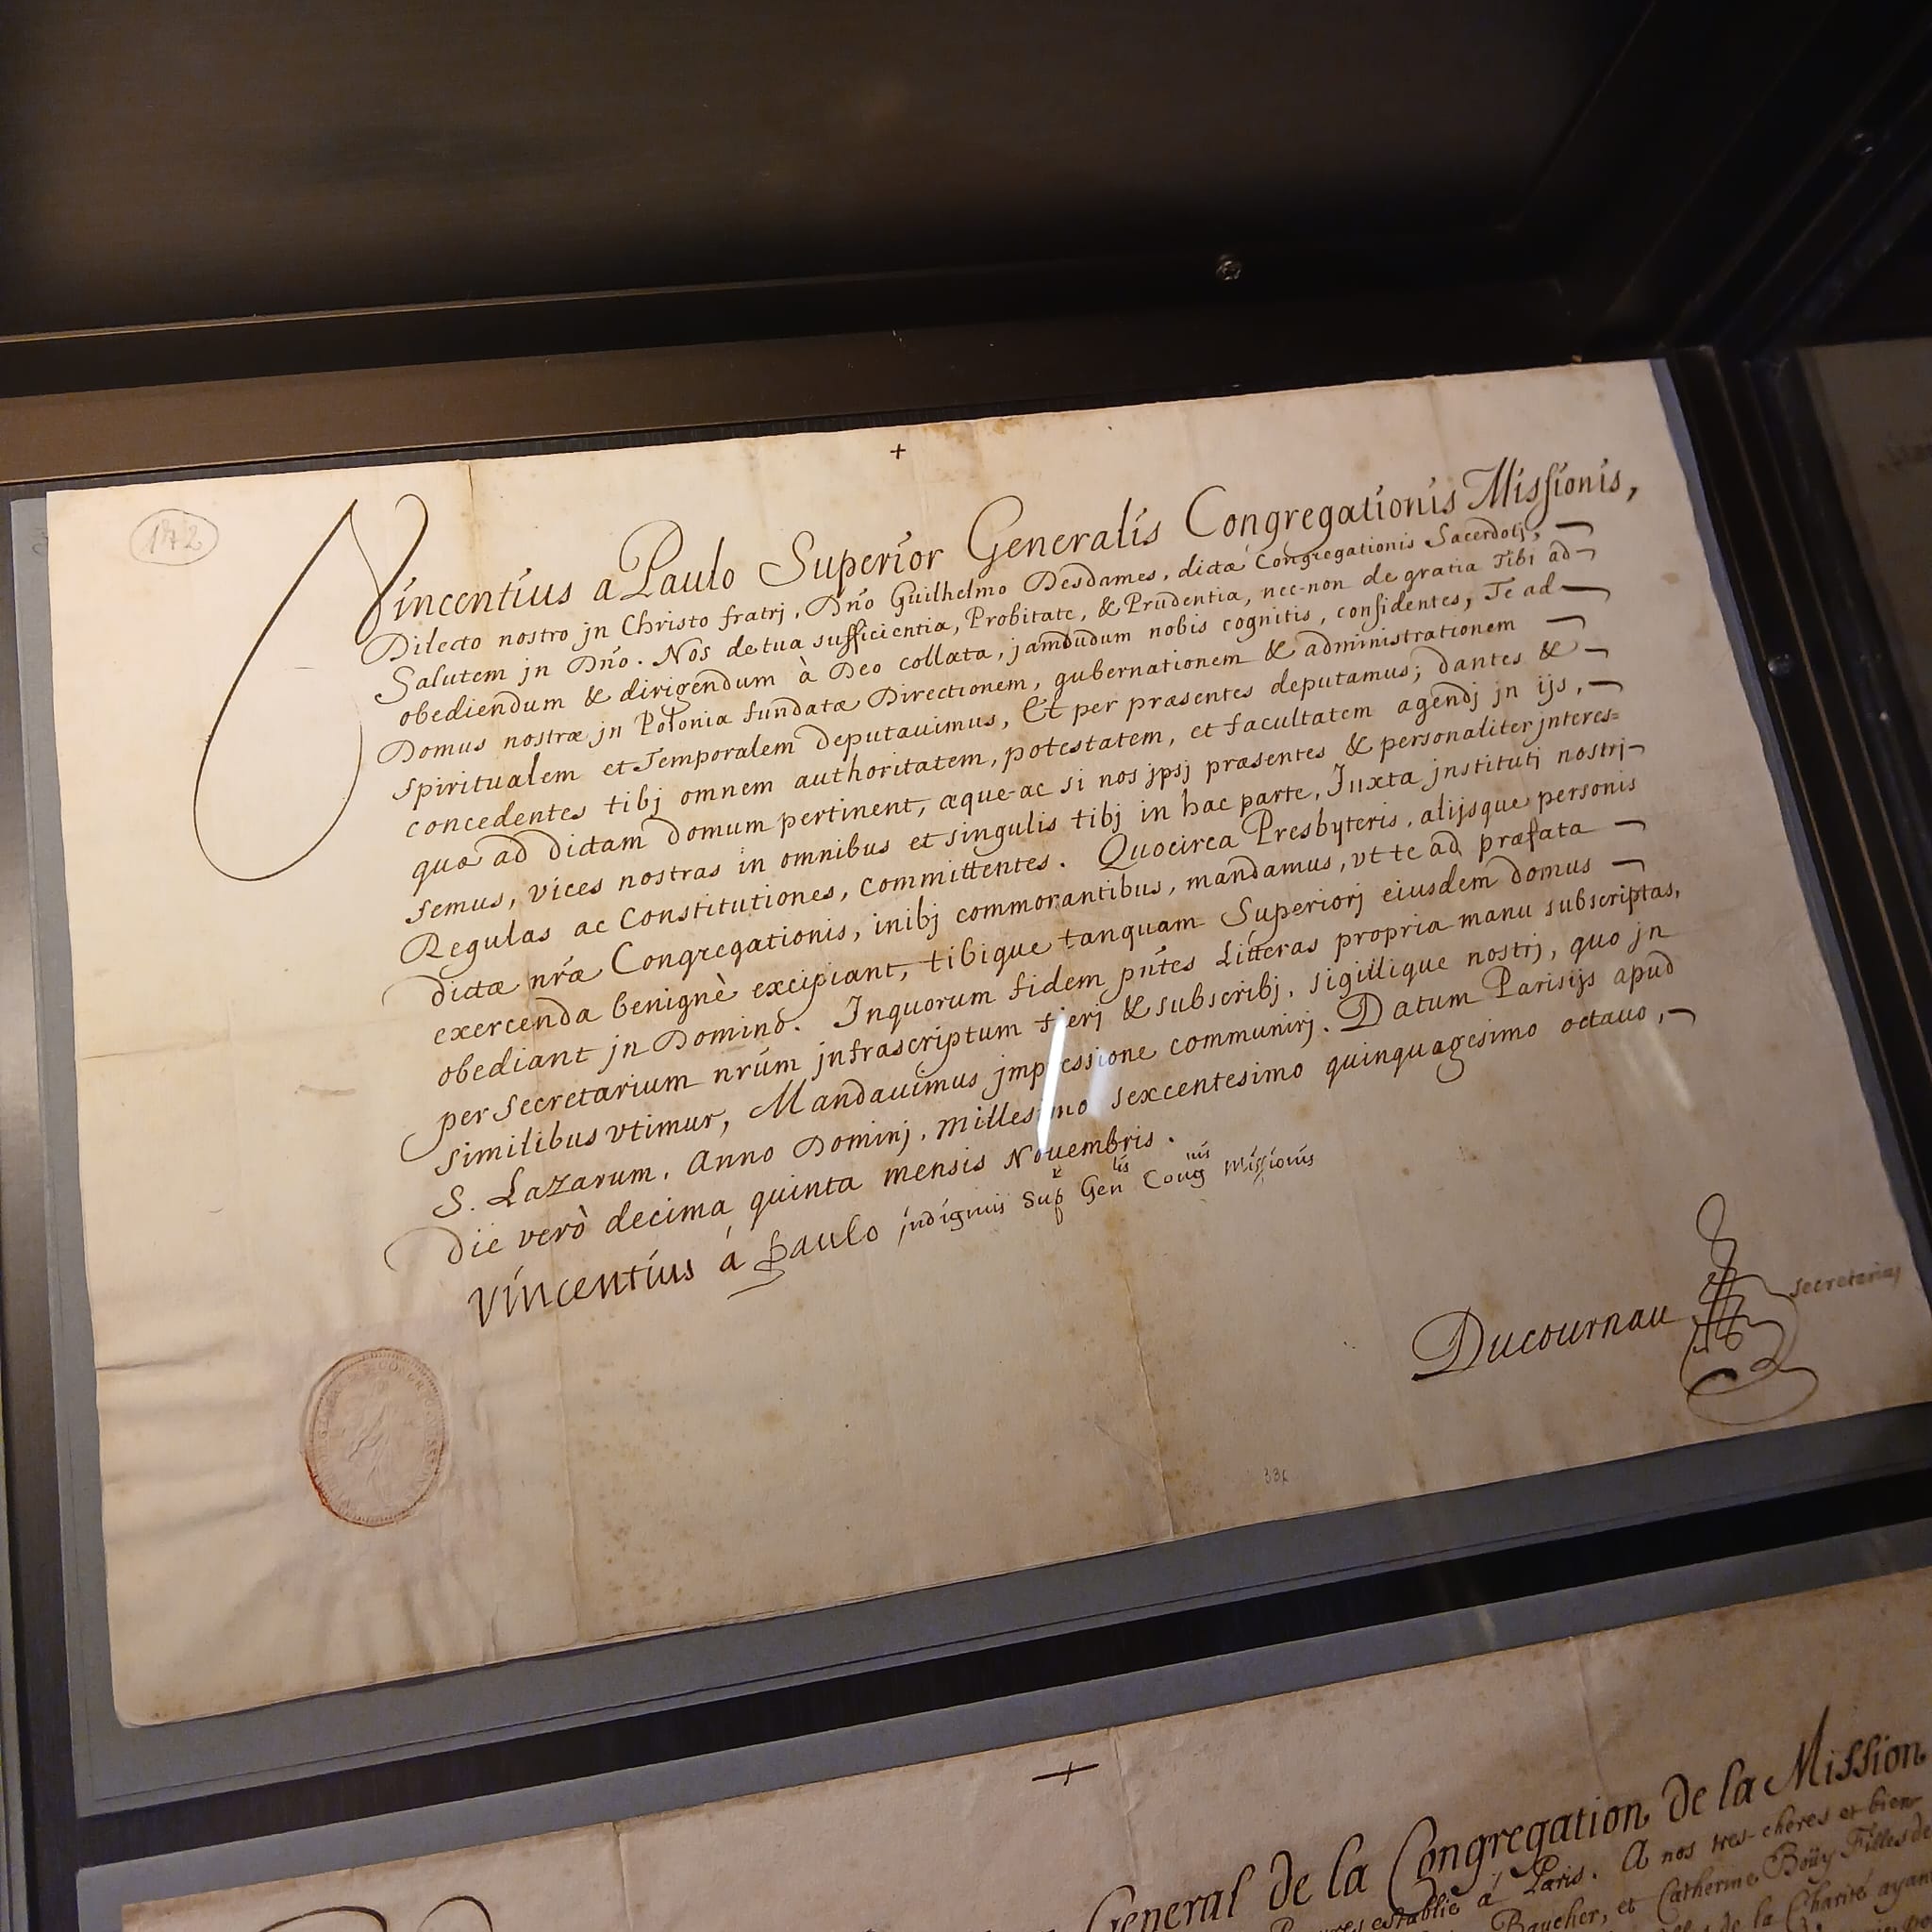 142
+
Vincentius a Paulo Superior Generalis Congregationis Missionis,
Dilecto nostro jn Christo fratrj, Dno Guilhelmo Desdames, dictæ Congregationis Sacerdotj,
Salutem jn Dno. Nos de tua sufficientia, Probitate, & Prudentia, nec-non de gratia Tibi ad
obediendum & dirigendum à Deo collata, jamdudum nobis cognitis, confidentes, Te ad
Domus nostræ jn Polonia fundatæ Directionem, gubernationem & administrationem
spiritualem et Temporalem deputauimus, Et per præsentes deputamus; dantes &
concedentes tibj omnem authoritatem, potestatem, et facultatem agendj jn ijs,
quæ ad dictam domum pertinent, æque-ac si nos jpsj præsentes & personaliter jnteres=
semus, vices nostras in omnibus et singulis tibj in hac parte, Juxta jnstitutj nostrj
Regulas ac Constitutiones, committentes. Quocirca Presbyteris, alijsque personis
dictæ nræ Congregationis, inibj commorantibus, mandamus, vt te ad præfata
exercenda benignè excipiant, tibique tanquam Superiorj eiusdem domus
obediant jn Domino. Inquorum fidem pñtes Litteras propria manu subscriptas,
per Secretarium nrũm jnfrascriptum fierj & subscribj, sigillique nostrj, quo jn
similibus vtimur, Mandauimus jmpressione communirj. Datum Parisijs apud
S. Lazarum, Anno Dominj, millesimo sexcentesimo quinquagesimo octauo,
Die verò decima quinta mensis Nouembris.
Vincentius á Paulo indignus Sup^r Gen^lis Cong^nis Missionis
Ducournau secretarius
CONGR
+
General de la Congregation de la Mission
establie á Paris. A nos tres-chères et bien
Baucher, et Catherine Boüy Filles de
de la Charité ayant